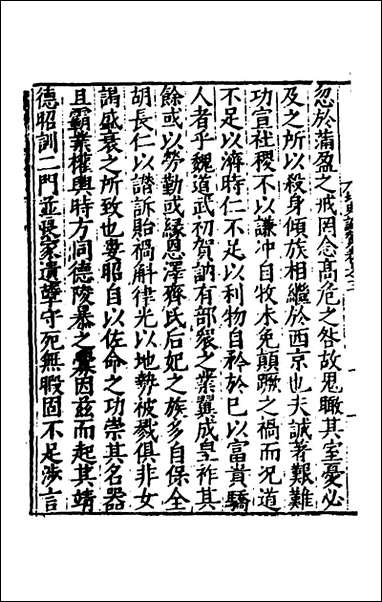 忽於蒲盈之戒罔念高危之咎故鬼瞰其室憂必
及之所以殺身傾族相繼於西京也夫誠著艱難
功宣社稷不以謙沖自牧未免顛蹶之禍而況道
不足以濟時仁不足以利物自矜於已以富貴驕
人者乎魏道武初賀訥有部衆之業翼成皇祚其
餘或以勞勤或緣恩澤齊氏后妃之族多自保全
胡長仁以譖訴貽禍斛律光以地勢被戮俱非女
謁盛衰之所致也婁昭自以佐命之功崇其名器
且霸業權輿時方同德陵暴之釁因茲而起其靖
德昭訓二門並喪家遺孽守死無暇固不足涉言